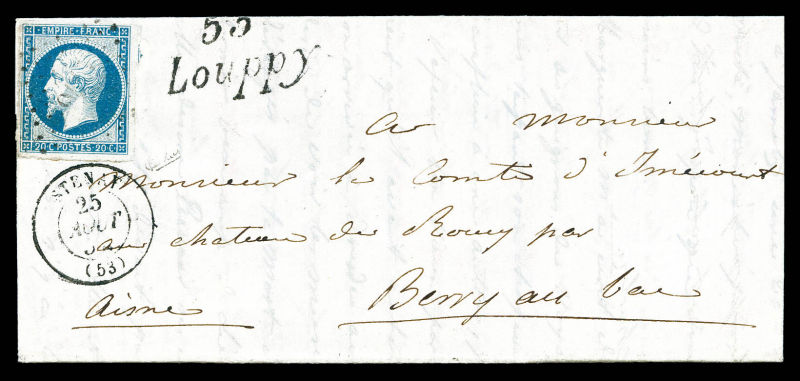 EMPIRE FRANC
20 C POSTES 20 C
53
Louppy
STENAY
25
AOUT
(53)
a Monsieur
Monsieur le Comte d'Imécourt
au chateau de Roucy par
Berry au bac
Aisne